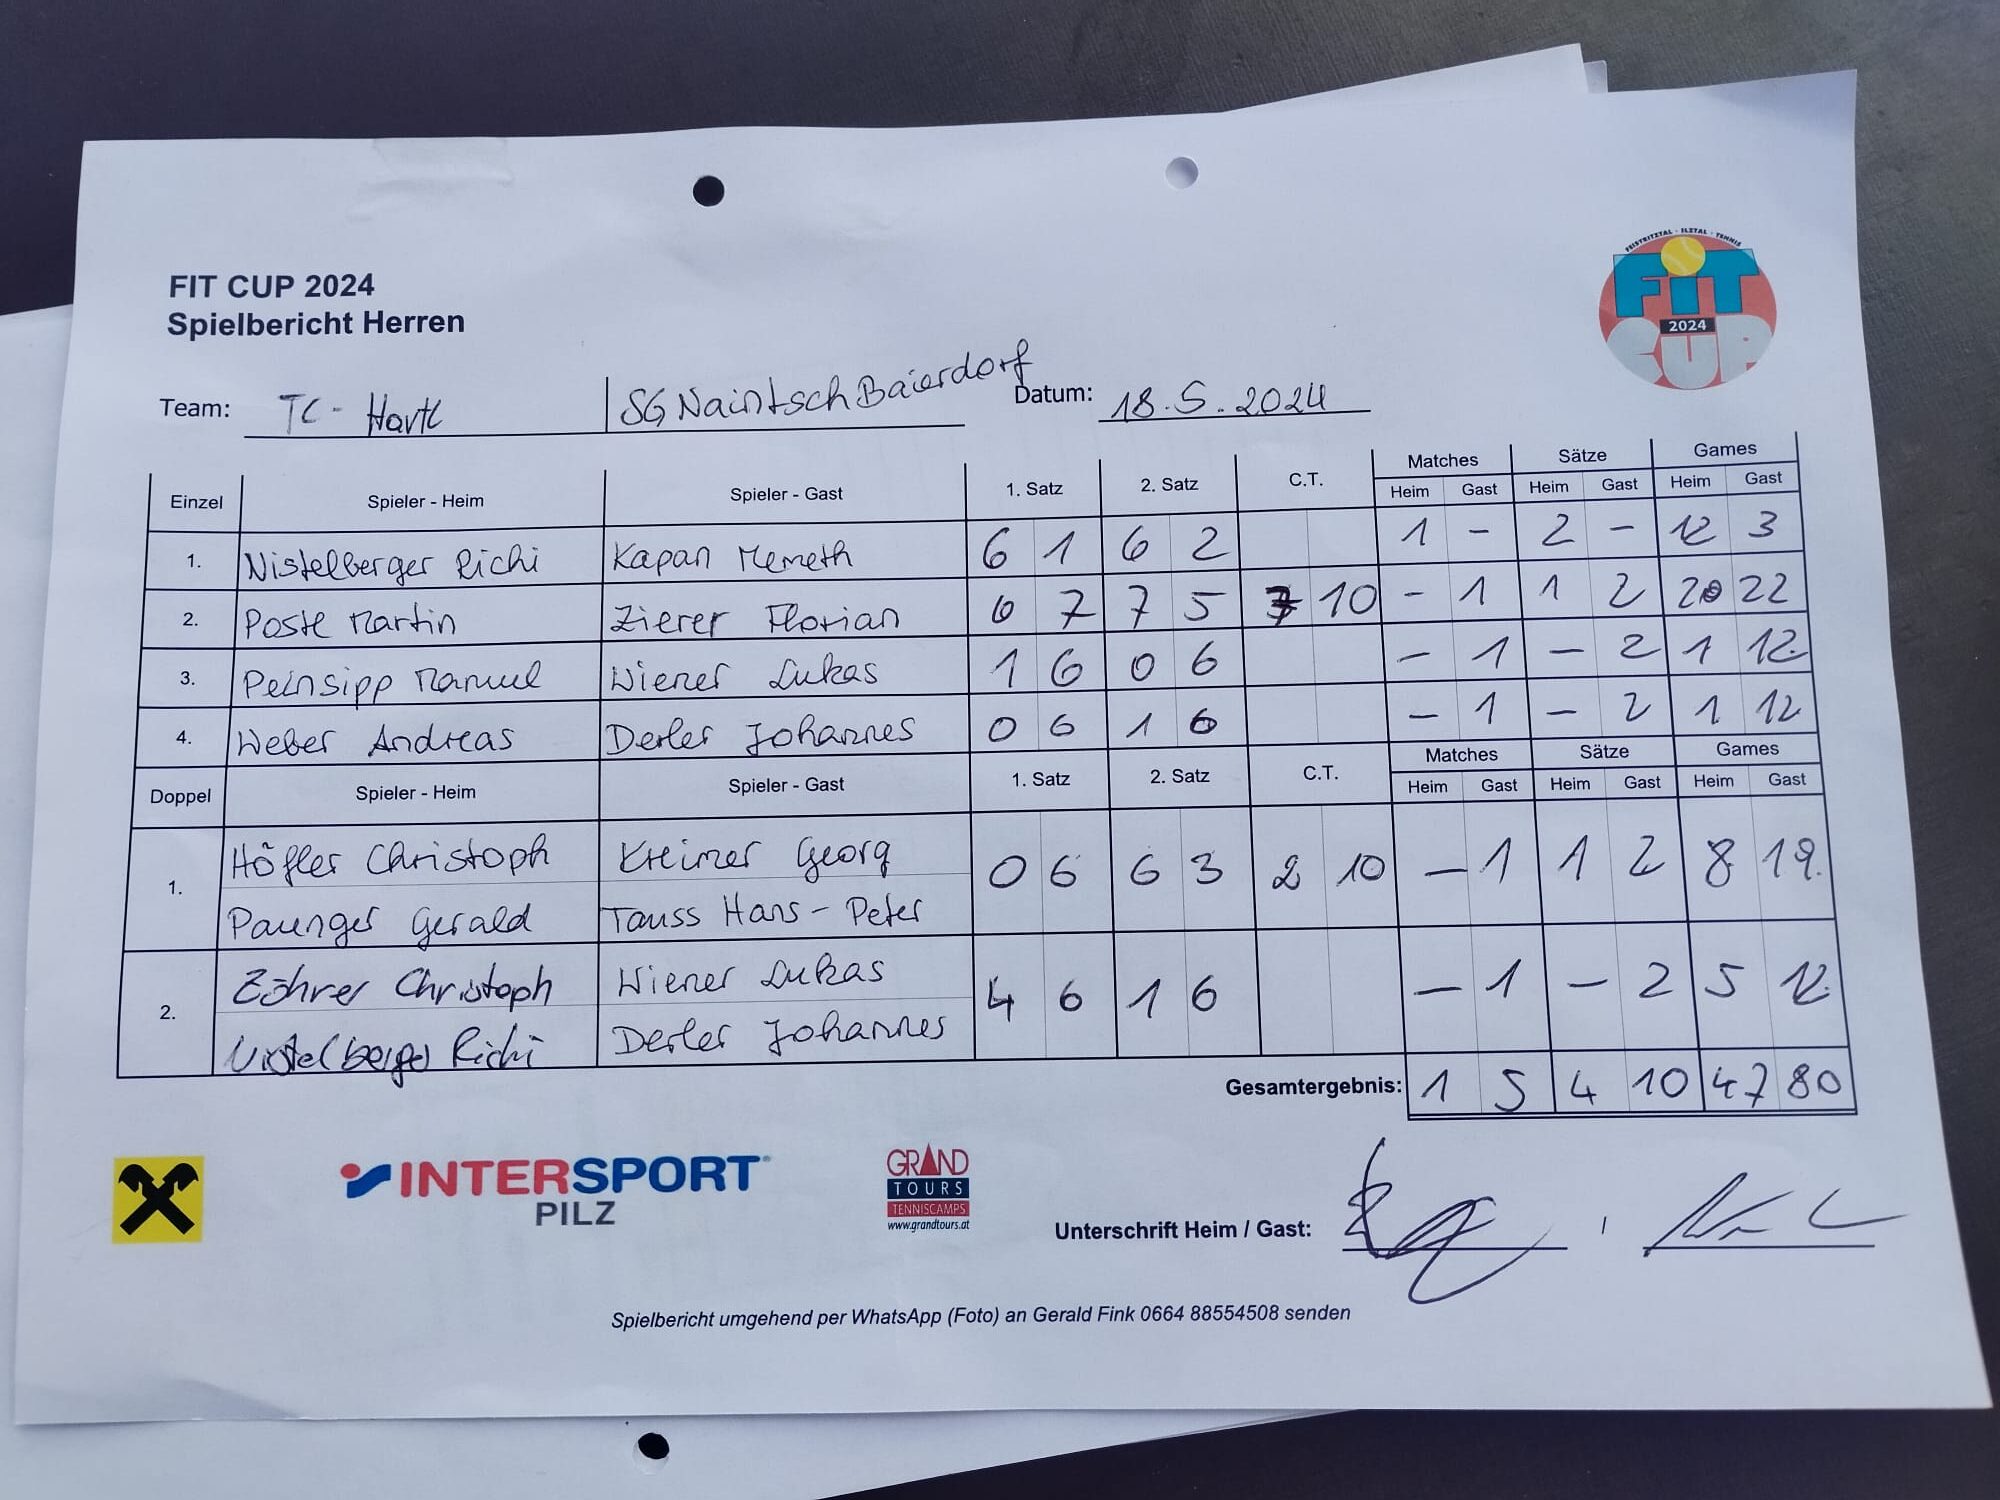 FEISTRITZTAL - ILZTAL - TENNIS
FiT
2024
CUP
FIT CUP 2024
Spielbericht Herren
Team: TC - Hartl | SG Naintsch Baierdorf Datum: 18.5.2024
Einzel Spieler - Heim Spieler - Gast 1. Satz 2. Satz C.T. Matches Sätze Games
Heim Gast Heim Gast Heim Gast
1. Nistelberger Richi Kapan Memeth 6 1 6 2 1 - 2 - 12 3
2. Postl Martin Zierer Florian 6 7 7 5 7 10 - 1 1 2 20 22
3. Peinsipp Manuel Wiener Lukas 1 6 0 6 - 1 - 2 1 12
4. Weber Andreas Derler Johannes 0 6 1 6 - 1 - 2 1 12
Doppel Spieler - Heim Spieler - Gast 1. Satz 2. Satz C.T. Matches Sätze Games
Heim Gast Heim Gast Heim Gast
1. Höfler Christoph Kreimer Georg 0 6 6 3 2 10 - 1 1 2 8 19
Paunger Gerald Tauss Hans-Peter
2. Zöhrer Christoph Wiener Lukas 4 6 1 6 - 1 - 2 5 12
Nistelberger Richi Derler Johannes
Gesamtergebnis: 1 5 4 10 47 80
INTERSPORT
PILZ
GRAND
TOURS
TENNISCAMPS
www.grandtours.at
Unterschrift Heim / Gast: /
Spielbericht umgehend per WhatsApp (Foto) an Gerald Fink 0664 88554508 senden